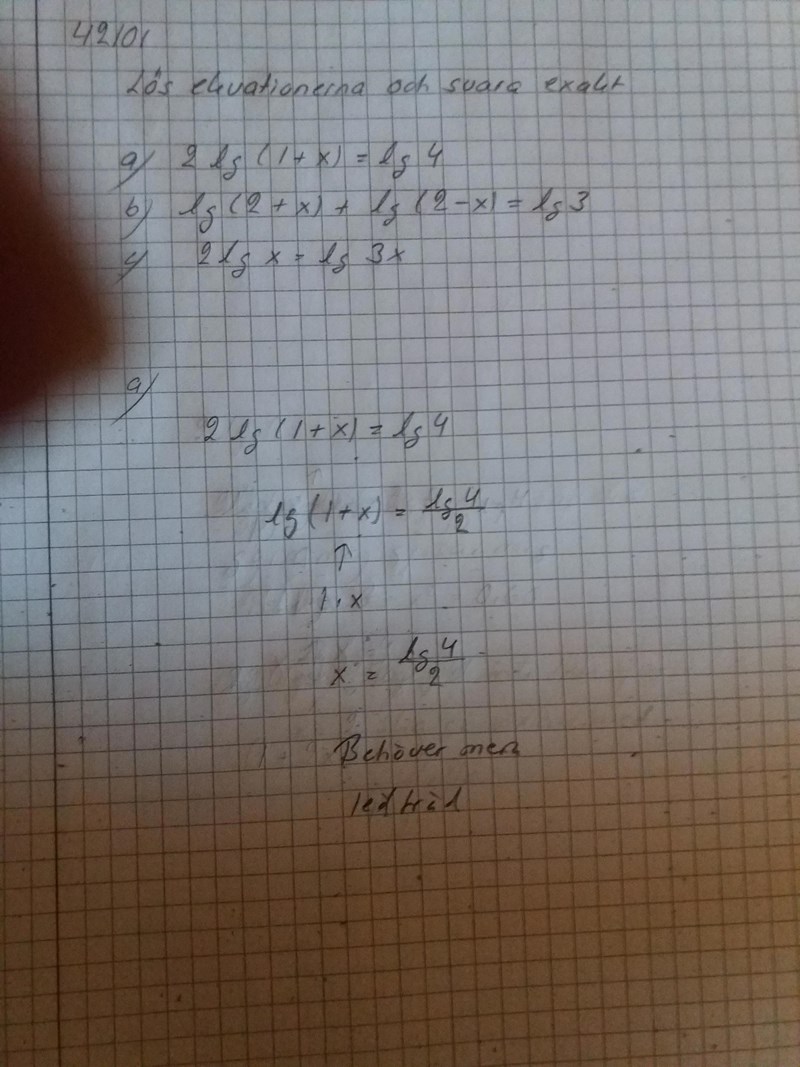 42101
Lös ekvationerna och svara exakt
a) 2 lg (1+x) = lg 4
b) lg (2+x) + lg (2-x) = lg 3
c) 2 lg x = lg 3x
a)
2 lg (1+x) = lg 4
lg (1+x) = lg 4 / 2
↑
1·x
x = lg 4 / 2
Behöver mer
ledtråd